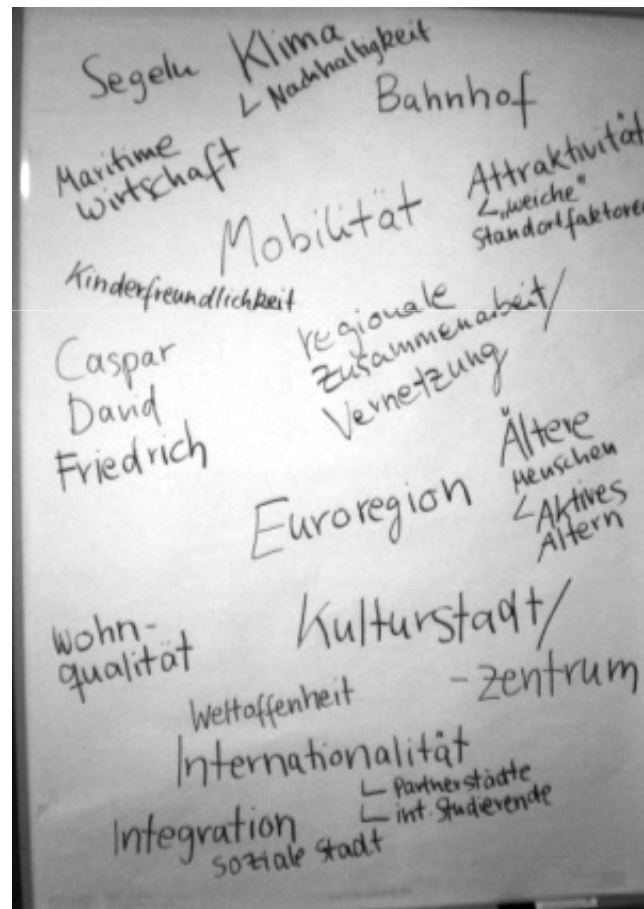 Segeln
Klima
Nachhaltigkeit
Bahnhof
Maritime
Wirtschaft
Attraktivität
„weiche“
Standortfaktoren
Mobilität
Kinderfreundlichkeit
regionale
Zusammenarbeit/
Vernetzung
Caspar
David
Friedrich
Ältere
Menschen
Aktives
Altern
Euroregion
Kulturstadt/
-zentrum
Wohn-
qualität
Weltoffenheit
Internationalität
Partnerstädte
int. Studierende
Integration
soziale Stadt